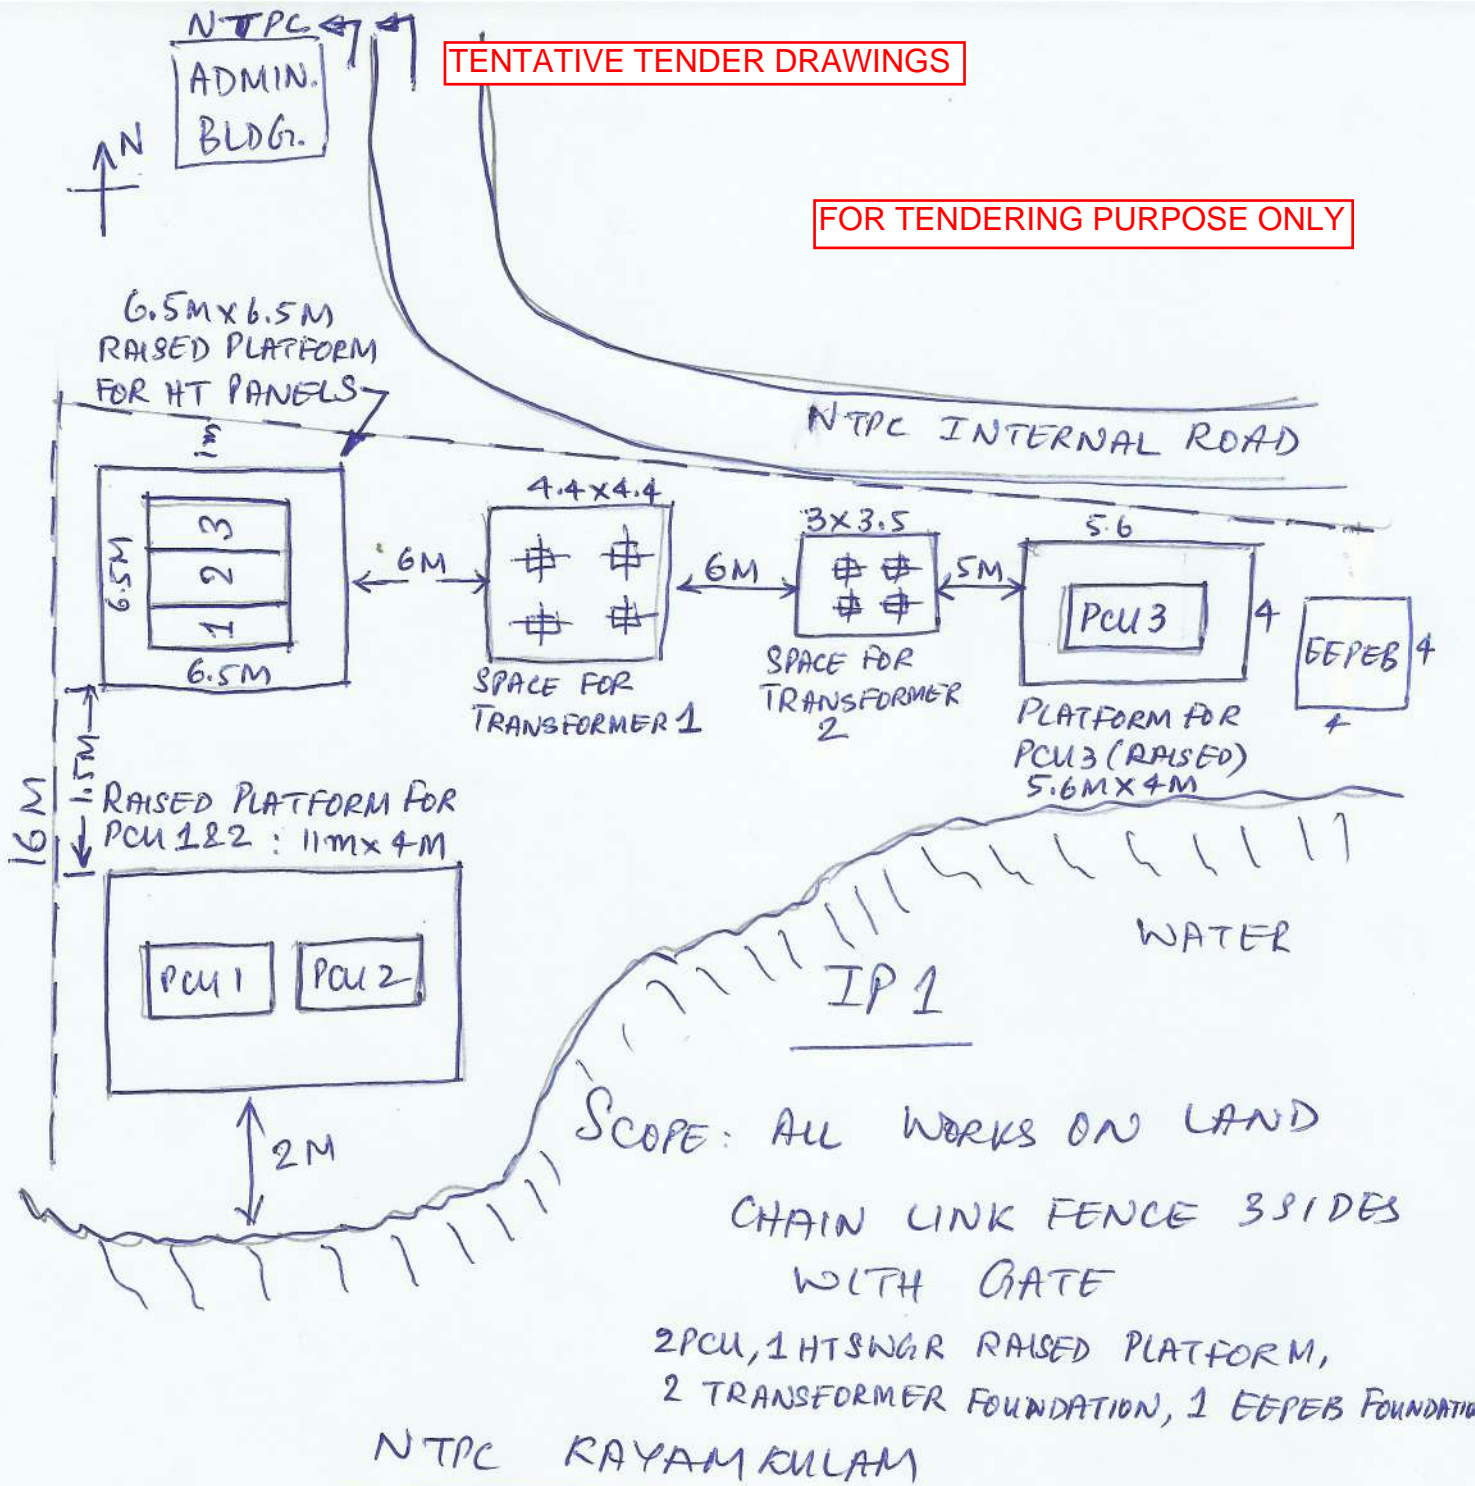 NTPC
ADMIN.
BLDG.
TENTATIVE TENDER DRAWINGS
N
FOR TENDERING PURPOSE ONLY
6.5M X 6.5M
RAISED PLATFORM
FOR HT PANELS
1m
NTPC INTERNAL ROAD
3
2
1
6.5M
6.5M
6M
4.4 X 4.4
SPACE FOR
TRANSFORMER 1
6M
3 X 3.5
SPACE FOR
TRANSFORMER
2
5M
5.6
PCU 3
4
PLATFORM FOR
PCU 3 (RAISED)
5.6M X 4M
EEPEB
4
4
16M
1.5M
RAISED PLATFORM FOR
PCU 1&2 : 11m x 4M
PCU 1
PCU 2
2M
WATER
IP 1
SCOPE: ALL WORKS ON LAND
CHAIN LINK FENCE 3 SIDES
WITH GATE
2PCU, 1 HT SWGR RAISED PLATFORM,
2 TRANSFORMER FOUNDATION, 1 EEPEB FOUNDATION
NTPC KAYAMKULAM